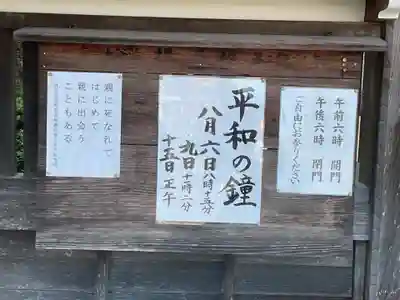 午前六時 開門
午後六時 閉門
ご自由にお参りください
平和の鐘
八月六日 八時十五分
九日 十一時二分
十五日 正午
親に死なれて
はじめて
親に出会う
こともある